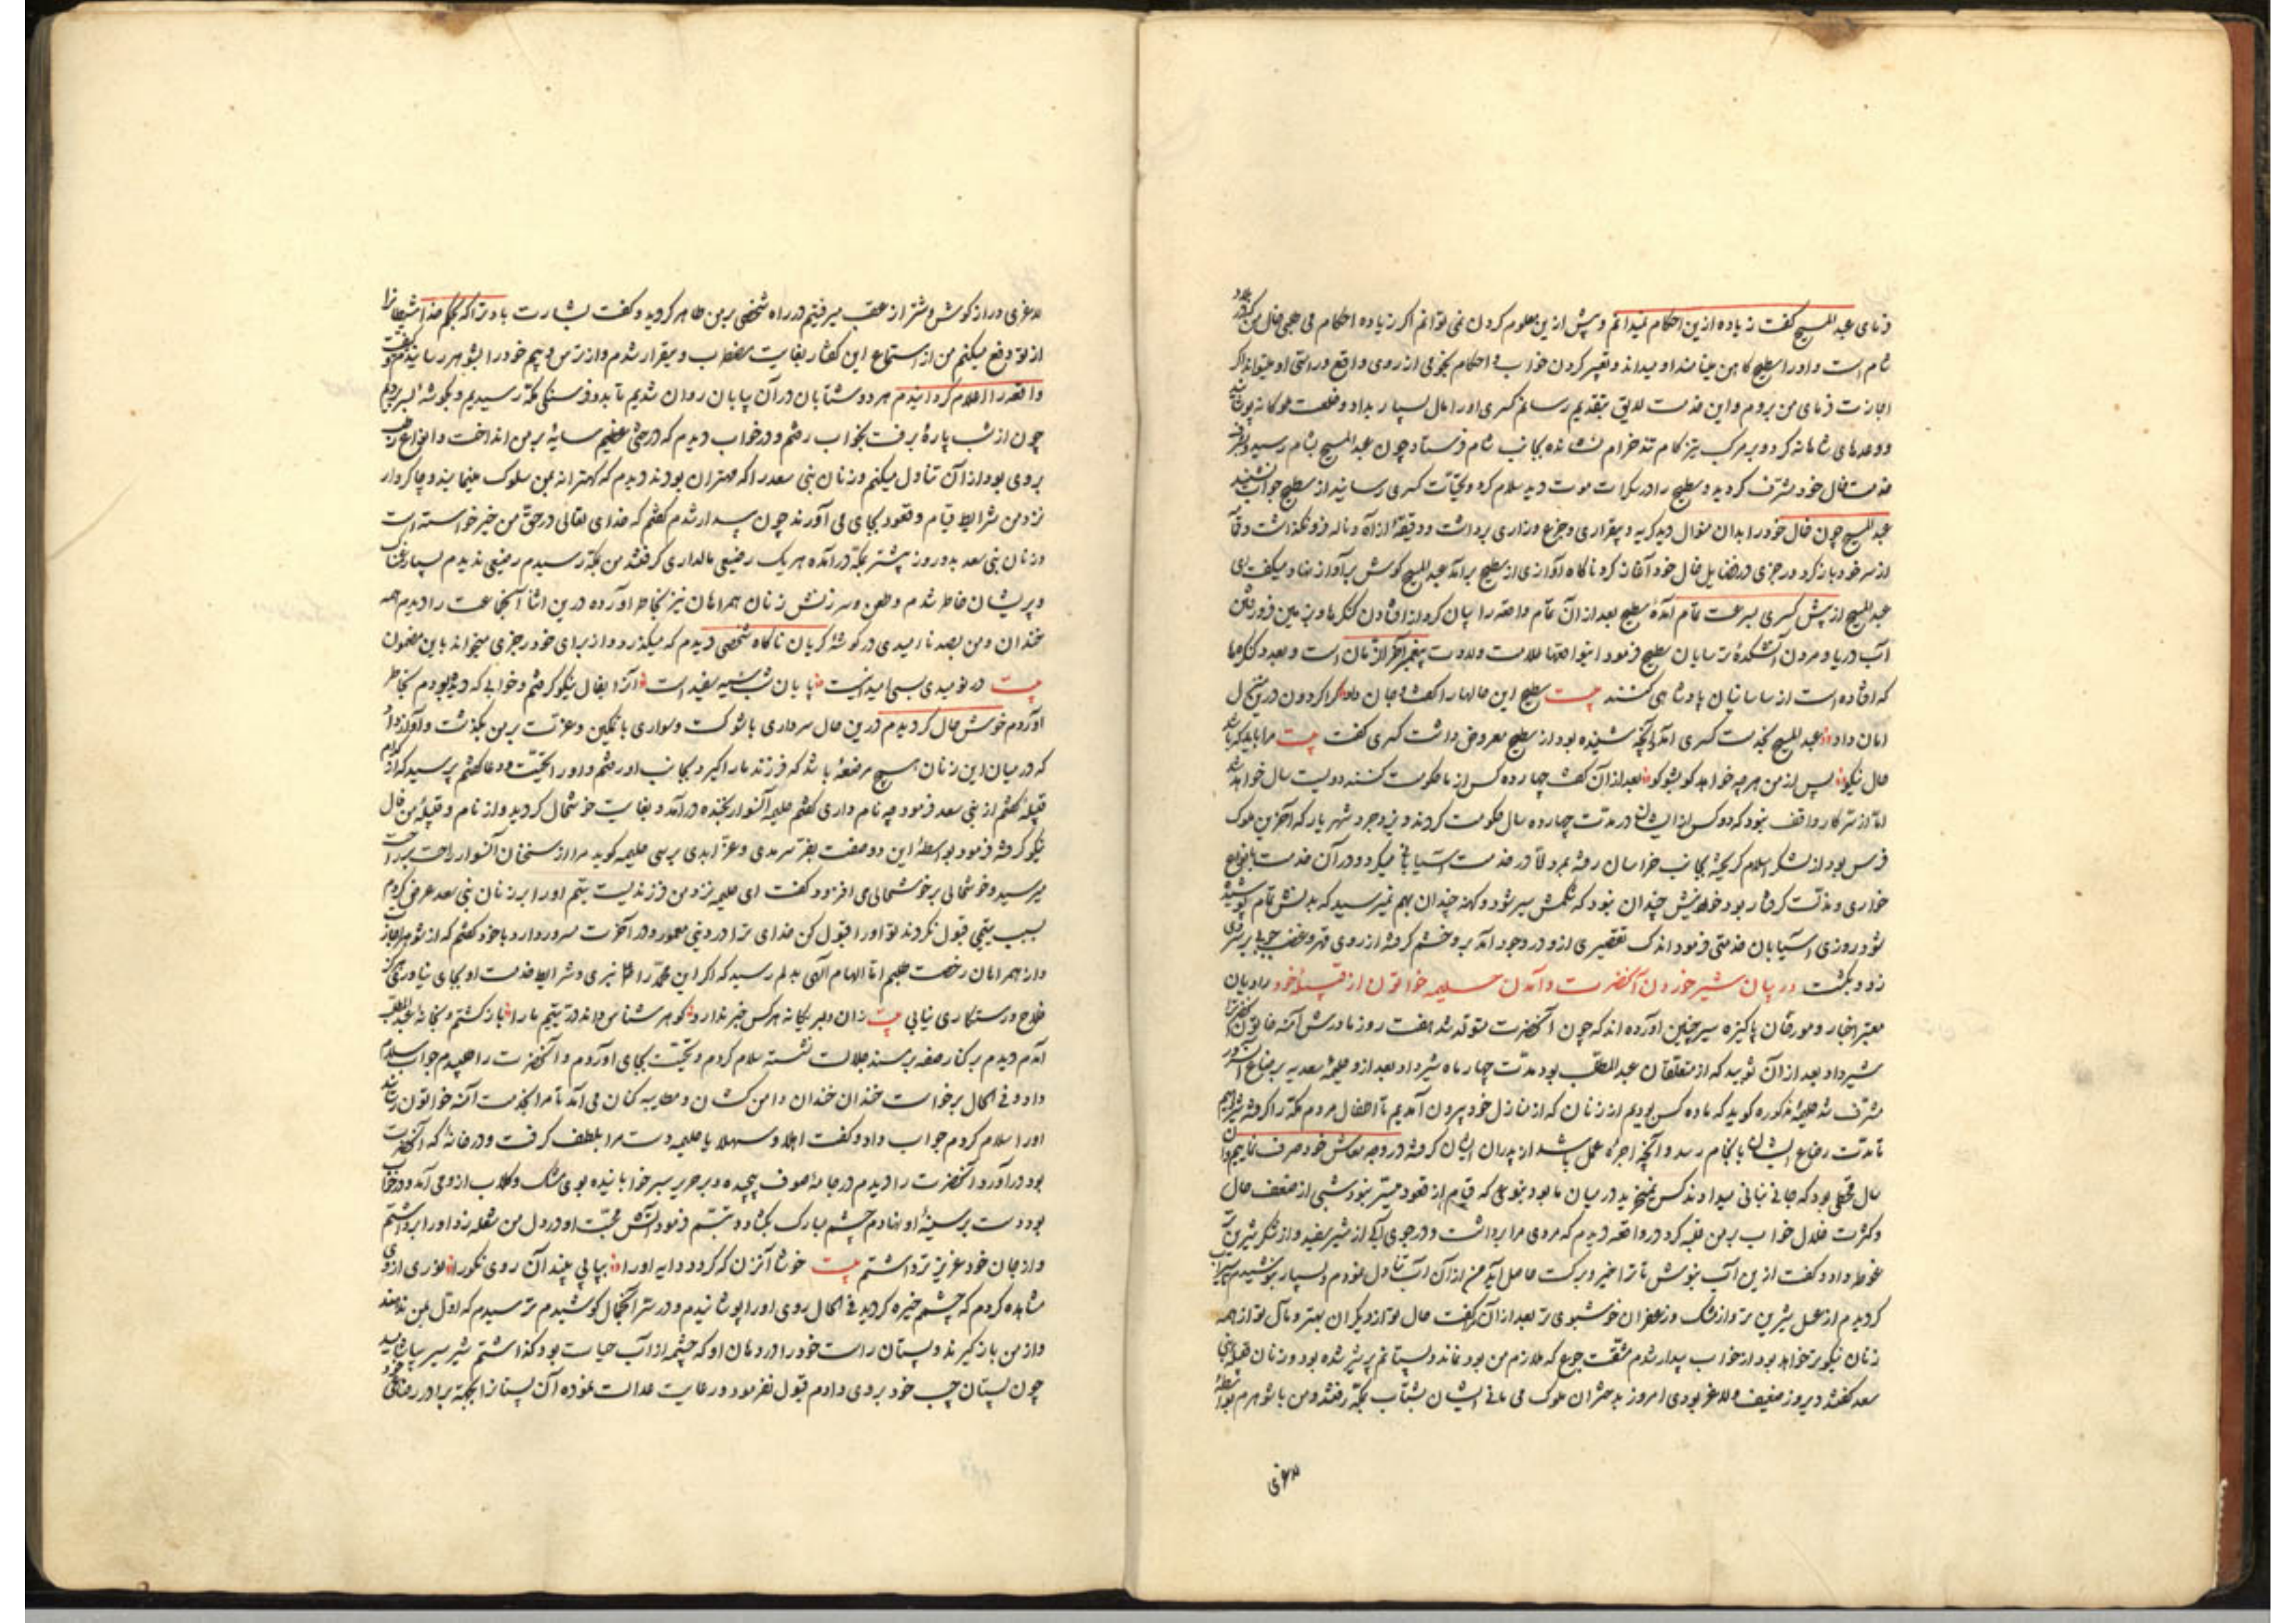 فرمای عبد المسیح گفت زیاده ازین احکام نمیدانم و بیش ازین معلوم کردن نمی توانم اگر زیاده احکام می خال من که در
شام است و اورا سطیح کاهن مینامند او میداند و تعبیر کردن خواب و احکام نجومی از روی واقع و راستی او میتواند اگر
اجازت فرمای من بروم و این خدمت لایق بتقدیم رسانم کسری اورا مال بسیار بداد و خلعت ملوکانه پوشانید
و وعدهای شاهانه کرد و بر مرکب تیز کام تند خرام نشانده بجانب شام فرستاد چون عبد المسیح بشام رسید و
خدمت خال خود مشرف گردید و سطیح را در سکرات موت دید سلام کرد و تحیّات کسری رسانید از سطیح جواب نشنید
عبد المسیح چون خال خود را بدان منوال دید گریه و بیقراری و جزع و زاری برداشت و دقیقهٔ از آه و ناله فرو نگذاشت و
از سر خود باز کرد و رجزی در فضایل خال خود آغاز کرد ناگاه آوازی از سطیح برآمد عبد المسیح گوش بر آواز نهاد میگفت ای
عبد المسیح از پیش کسری بسرعت تمام آمدهٔ سطیح بعد از آن تمام واقعه را بیان کرد از افتادن کنگرها و بزمین فرو رفتن
آب دریا و مردن آتشکدهٔ ترسایان سطیح فرمود اینواقعها علامت ولادت پیغمبر آخر الزمان است و بعدد کنگرها
که افتاده است از ساسانیان پادشاهی کنند بیت سطیح این حالها را گفت و جان داد کرا گردون درین منزل
امان داد عبد المسیح بخدمت کسری آمد آنچه شنیده بود از سطیح معروض داشت کسری گفت بیت مرا باید که باشد
حال نیکو پس از من هر چه خواهد گو بشو گو بعد از آن گفت چهارده کس از ما حکومت کنند دویست سال خواهد شد
امّا از سرّ کار واقف نبود که دو کس از ایشان در مدّت چهارده سال حکومت کردند و یزدجرد شهریار که آخرین ملوک
فرس بود از لشکر اسلام گریخته بجانب خراسان رفته بمرد امّا در خدمت آسیابانی میکرد و در آن خدمت بانواع
خواری و مذلّت گرفتار بود خوردنیش چندان نبود که شکمش سیر شود و کهنه چندان بهم نمیرسید که بدنش تمام پوشیده
شود روزی آسیابان خدمتی فرمود اندک تقصیری ازو در وجود آمد برو خشم گرفته از روی قهر و غضب چوبها بر سر وی
زد و بکشت در بیان شیر خوردن آنحضرت و آمدن حلیمه خواتون از قبیلهٔ خود راویان
معتبر اخبار و مورّخان پاکیزه سیر چنین آورده اند که چون آنحضرت متولّد شد هفت روز مادرش آمنه خاتون
شیر داد بعد از آن ثویبه که از متعلّقان عبد المطّلب بود مدّت چهار ماه شیر داد بعد از و حلیمهٔ سعدیه برضاع آن سرور
مشرّف شد حلیمهٔ مذکوره گوید که ما ده کس بودیم از زنان که از منازل خود بیرون آمدیم تا اطفال مردم مکّه را گرفته شیر دهیم
تا مدّت رضاع ایشان بانجام رسد و آنچه اجرهٔ عمل باشد از پدران ایشان گرفته در وجه معاش خود صرف نماییم و آن
سال قحطی بود که جانی بنانی میدادند کس نمیخرید در میان ما بود بنوعی که قیام از قعود میسّر نبود شبی از ضعف حال
و کثرت ملال خواب بر من غلبه کرد در واقعه دیدم که مردی مرا برداشت و در جوی آبی از شیر سفید و از شکر شیرین تر
غوطه داد و گفت ازین آب بنوش تا ترا خیر و برکت حاصل آید من از آن آب تناول نمودم و بسیار بنوشیدم سیراب
گردیدم از عسل شیرین تر و از مشک و زعفران خوشبوی تر بعد از آن گفت حال تو از دیگران بهتر و مآل تو از همه
زنان نیکوتر خواهد بود از خواب بیدار شدم مشقّت جوع که ملازم من بود نماند و پستانم پر شیر شده بود و زنان قبیلهٔ بنی
سعد گفتند دیروز ضعیف و لاغر بودی امروز بدختران ملوک می مانی ایشان بشتاب بمکّه رفتند و من با شوهرم بواسطهٔ
لاغری
لاغری دراز گوش و شتر از عقب میرفتیم در راه شخصی بر من ظاهر گردید و گفت بشارت باد ترا که بحکم خدا شیطانرا
از تو دفع میکنم من از استماع این گفتار بغایت مضطرب و بیقرار شدم و از ترس و بیم خود را بشوهر رسانیدم و گفت
واقعه را اعلام گردانیدم هر دو شتابان در آن بیابان روان شدیم تا بدو فرسنگی مکّه رسیدیم و بگوشهٔ بسر بردیم
چون از شب پارهٔ برفت بخواب رفتم و در خواب دیدم که درختی عظیم سایهٔ بر من انداخت و انواع رطب
بروی بود از آن تناول میکنم و زنان بنی سعد را که مهتران بودند دیدم که کهترانه بمن سلوک مینمایند و چاکروار
نزد من شرایط قیام و قعود بجای می آورند چون بیدار شدم گفتم که خدای تعالی در حقّ من خیر خواسته است
و زنان بنی سعد بدو روز پیشتر بمکّه درآمده هر یک رضیعی مالداری گرفتند من بمکّه رسیدم رضیعی ندیدم بسیار غمناک
و پریشان خاطر شدم و طعن و سرزنش زنان همراهان نیز بخاطر آورده درین اثنا آنجماعت را دیدم همه
خندان و من بصد ناامیدی در گوشهٔ گریان ناگاه شخصی دیدم که میگذرد و از برای خود رجزی میخواند باین مضمون
بیت در نومیدی بسی امیدست پایان شب سیه سفید است آنرا بفال نیکو گرفتم و خوابی که دیده بودم بخاطر
آوردم خوش حال گردیدم درین حال سرداری با شوکت و سواری با تمکین و عزّت بر من بگذشت و آواز داد
که در میان این زنان هیچ مرضعهٔ باشد که فرزند ما را گیرد بجانب او رفتم و اورا تحیّت و دعا گفتم پرسید که از کدام
قبیلهٔ گفتم از بنی سعد فرمود چه نام داری گفتم حلیمه آنسوار بخنده درآمد و بغایت خوشحال گردید و از نام و قبیلهٔ من فال
نیکو گرفته فرمود بواسطهٔ این دو صفت بعزّ سرمدی و عزّ ابدی برسی حلیمه گوید مرا از سخنان آنسوار راحت بر راحت
میرسید و خوشحالی بر خوشحالی می افزود گفت ای حلیمه نزد من فرزندیست یتیم اورا بر زنان بنی سعد عرض کردم
بسبب یتیمی قبول نکردند تو اورا قبول کن خدای ترا در دنیی معمور و در آخرت مسرور دارد با خود گفتم که از شوهر اجازت
و از همراهان رخصت طلبم امّا الهام الهی بدلم رسید که اگر این محمّد را نبری و شرایط خدمت او بجای نیاوری هرگز
فلاح و رستگاری نیابی بیت زان دلبر یگانه هر کس خبر ندارد گوهر شناس داند درّ یتیم ما را بازگشتم و بخانهٔ عبد المطّلب
آمدم دیدم بر کنار صفّه بر مسند جلالت نشسته سلام کردم و تحیّت بجای آوردم و آنحضرت را طلبیدم جواب سلام
داد و فی الحال برخاست خندان خندان دامن کشان و مطایبه کنان می آمد تا مرا بخدمت آمنه خواتون رسانید
اورا سلام کردم جواب داد و گفت اهلا و سهلا یا حلیمه دست مرا بلطف گرفت و در خانهٔ که آنحضرت
بود درآورد آنحضرت را دیدم در جامهٔ صوف پیچیده و بر حریر سبز خوابانیده بوی مشک و گلاب ازو می آمد و در خواب
بود دست بر سینهٔ او نهادم چشم مبارک بگشاد و تبسّم فرمود آتش محبّت او در دل من شعله زد اورا برداشتم
و از جان خود عزیزتر داشتم بیت خوشا آنزن که گردد دایه اورا بیابی بیند آن روی نکورا نوری از وی
مشاهده کردم که چشم خیره گردید فی الحال روی اورا پوشانیدم و در ستر آنجمال کوشیدم ترسیدم که اوّل بمن ندهند
و از من باز گیرند و پستان راست خود را در دهان او که چشمه از آب حیات بود گذاشتم شیر سیر بیاشامید
چون پستان چپ خود بروی دادم قبول نفرمود و رعایت عدالت نموده آن پستانرا بجهة برادر رضاعی خود